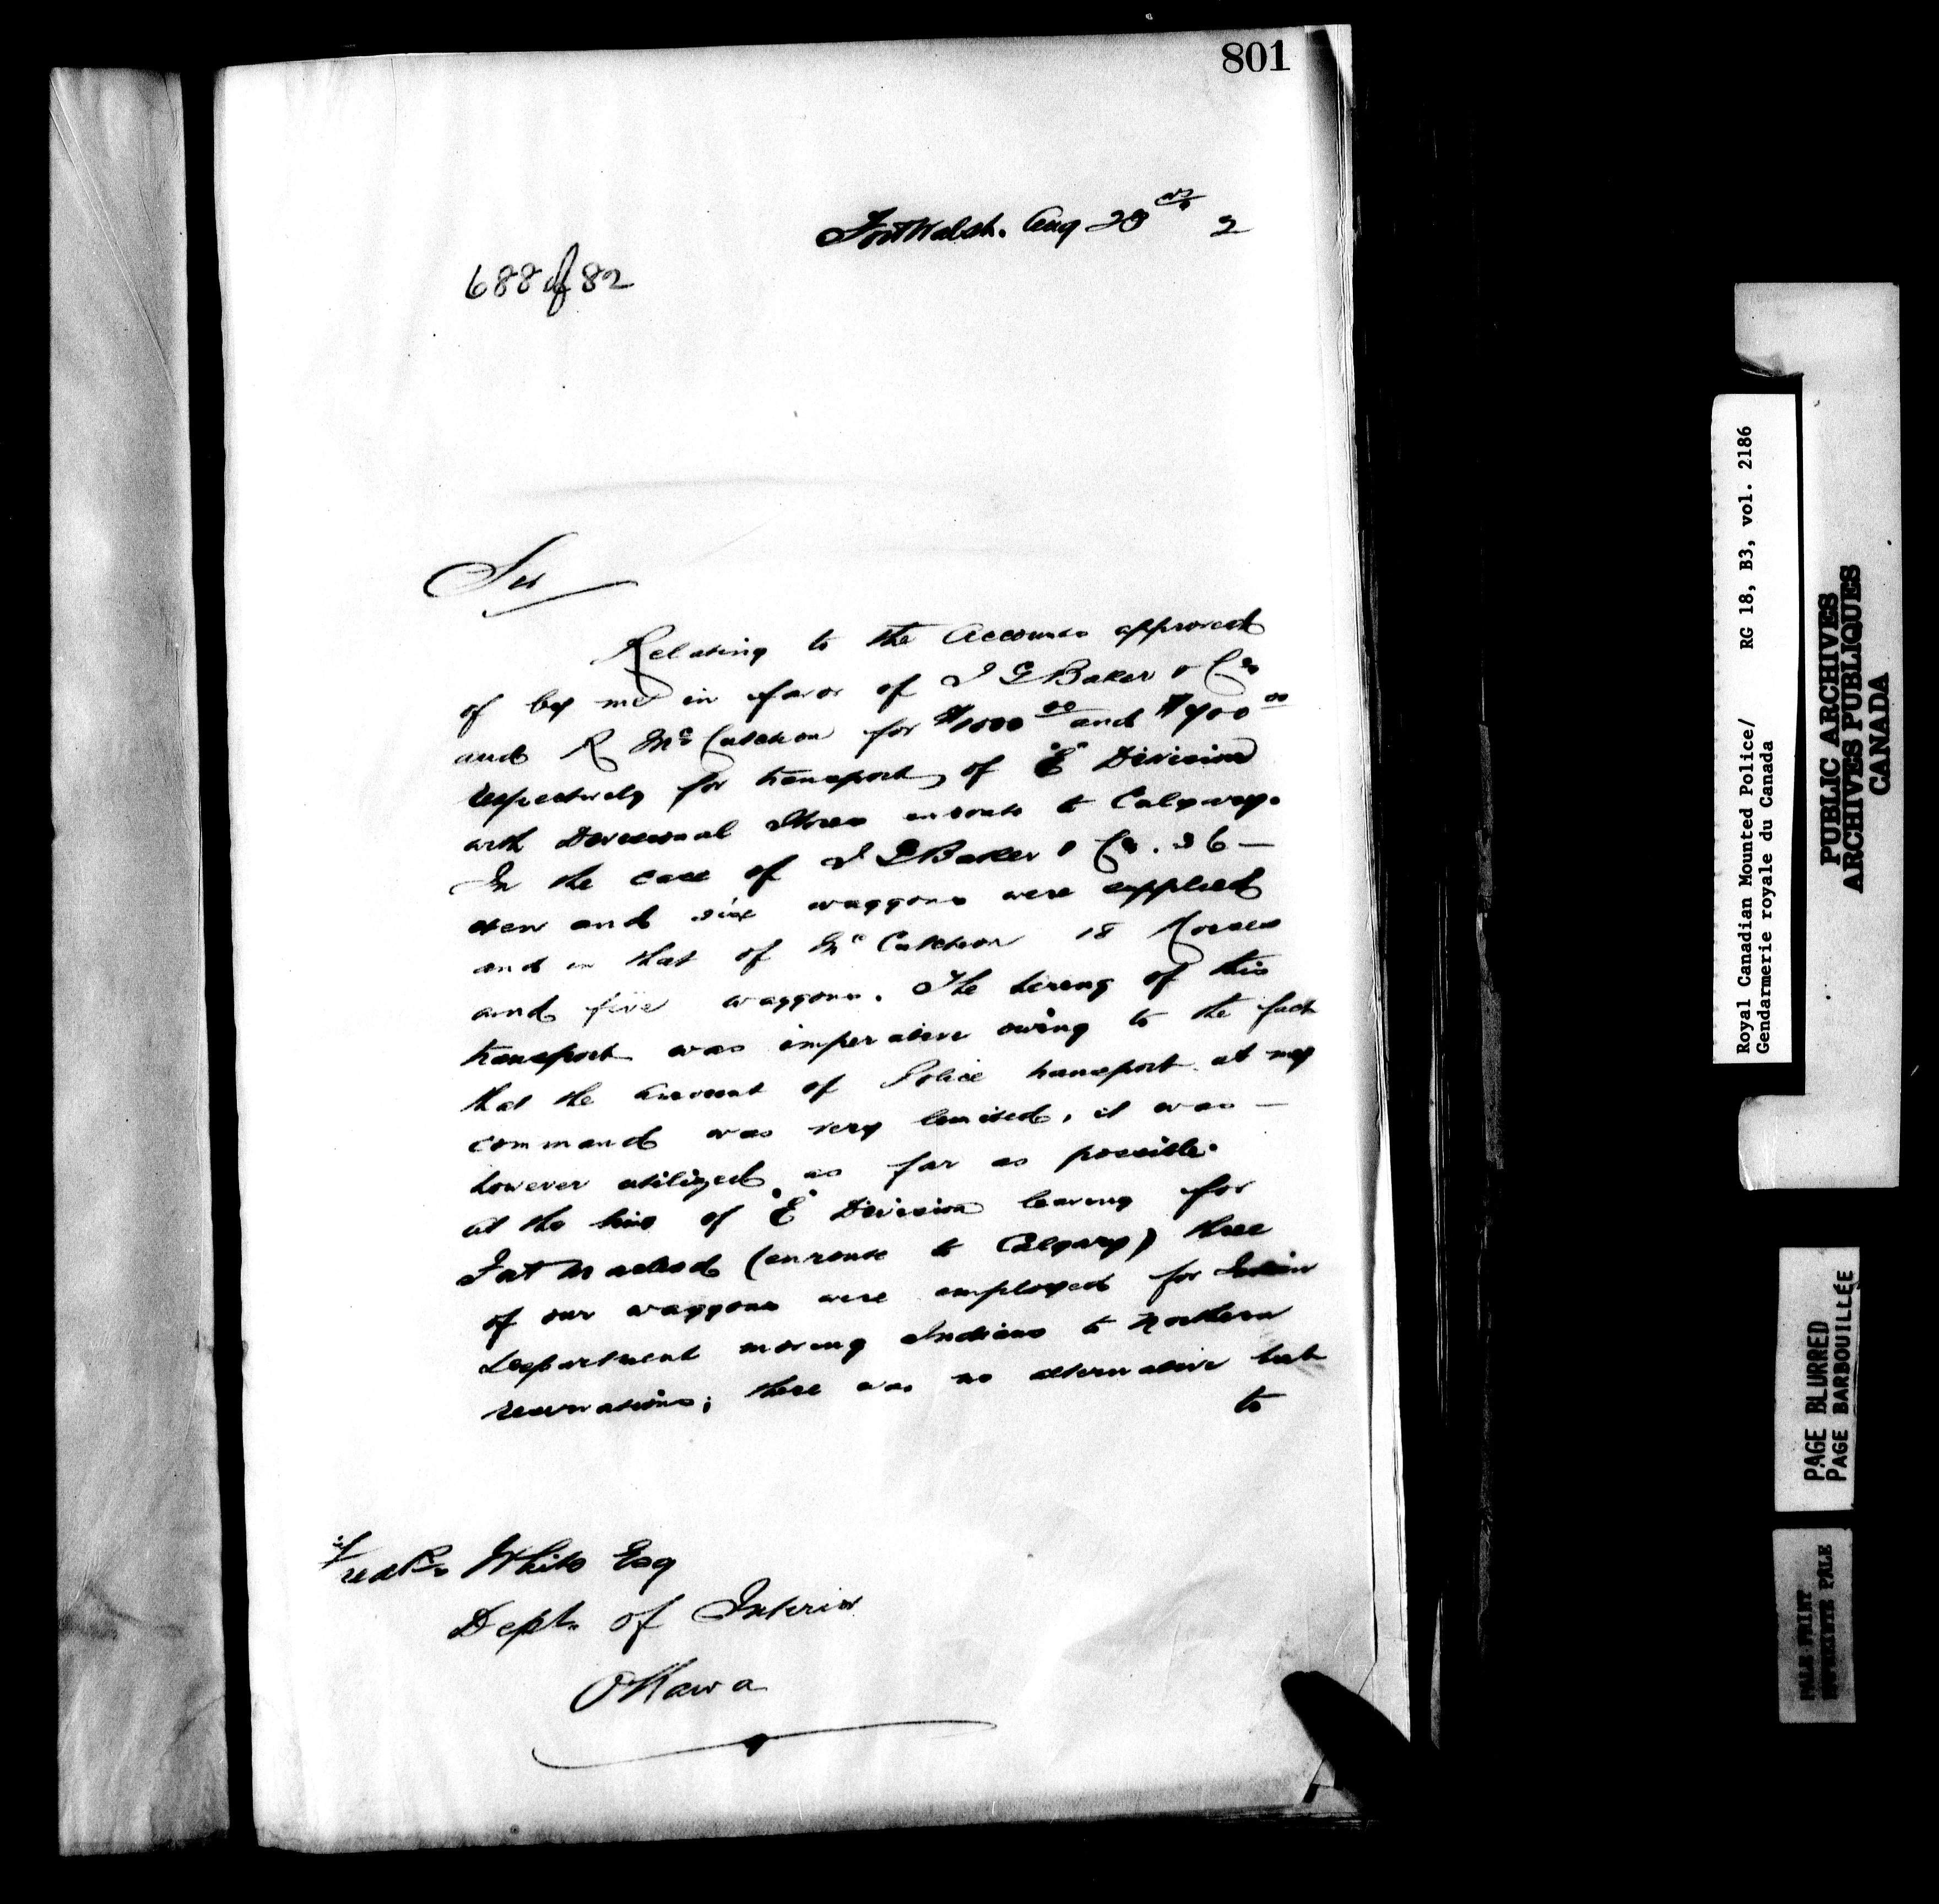 801
Fort Walsh. Aug 28th 2
688 of 82
Sir
Relating to the Accounts approved
of by me in favor of I G Baker & Co
and R McCutcheon for $1000 00 and $900 00
respectively for transport of "E" Division
with Divisional Stores enroute to Calgary.
In the case of I G Baker & Co. 36 –
oxen and six waggons were supplied
and in that of McCutcheon 18 Horses
and five waggons. The hireng of this
transport was imperative owing to the fact
that the amount of Police transport at my
command was very limited, it was –
however utilized as far as possible.
At the time of "E" Division leaving for
Fort Macleod (enroute to Calgary) three
of our waggons were employed for Indian
Department moving Indians to Northern
reservations; there was no alternative but
to
Fredk. White Esq
Dept. of Interior
Ottawa
Royal Canadian Mounted Police/ RG 18, B3, vol. 2186
Gendarmerie royale du Canada
PUBLIC ARCHIVES
ARCHIVES PUBLIQUES
CANADA
PAGE BLURRED
PAGE BARBOUILLÉE
PALE PRINT
IMPRIMERIE PALE